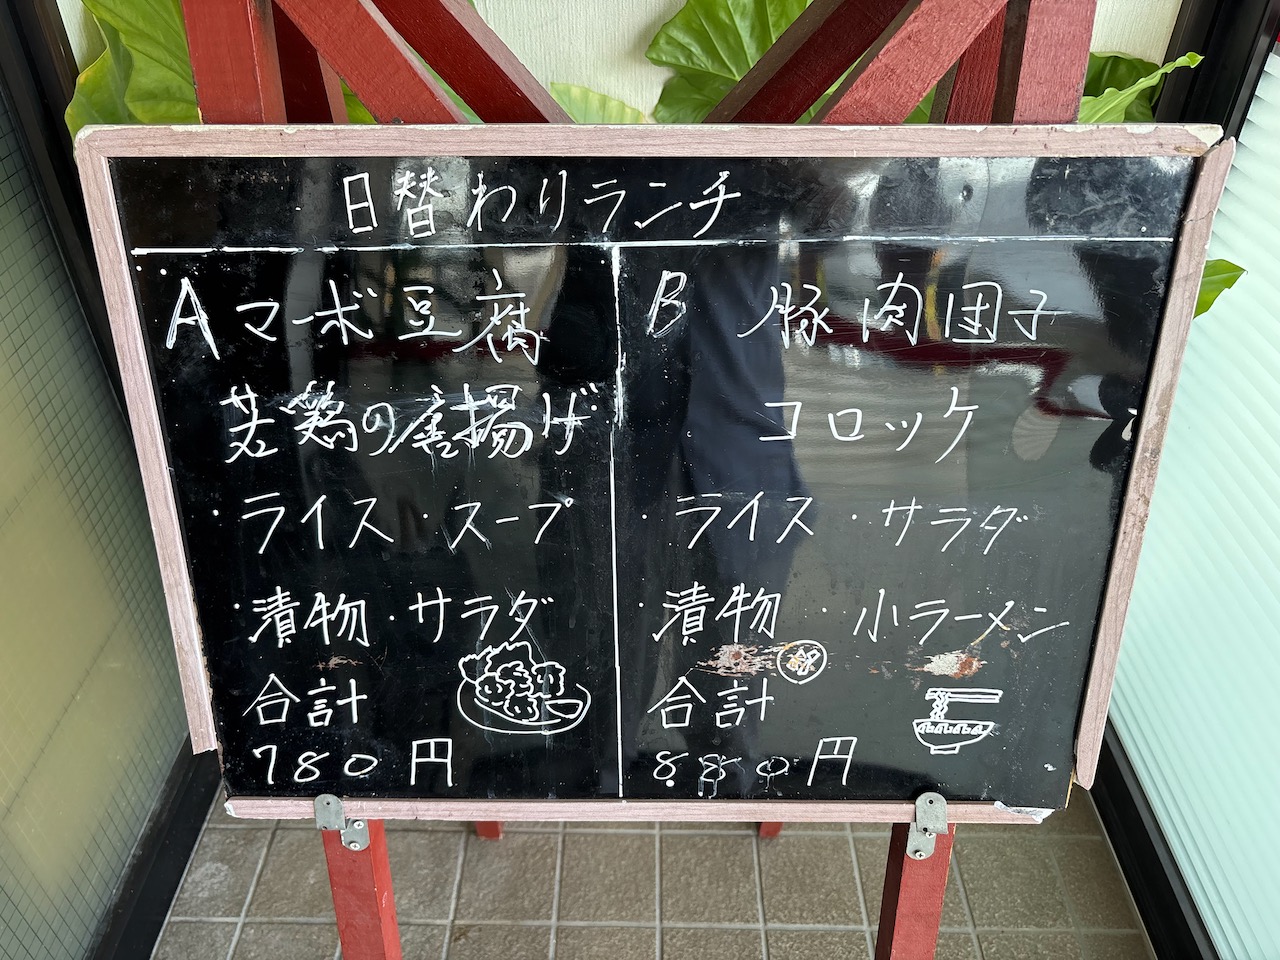 日替わりランチ
A マーボ豆腐
若鶏の唐揚げ
・ライス・スープ
・漬物・サラダ
合計
780円
B 豚肉団子
コロッケ
・ライス・サラダ
・漬物・小ラーメン
合計
880円